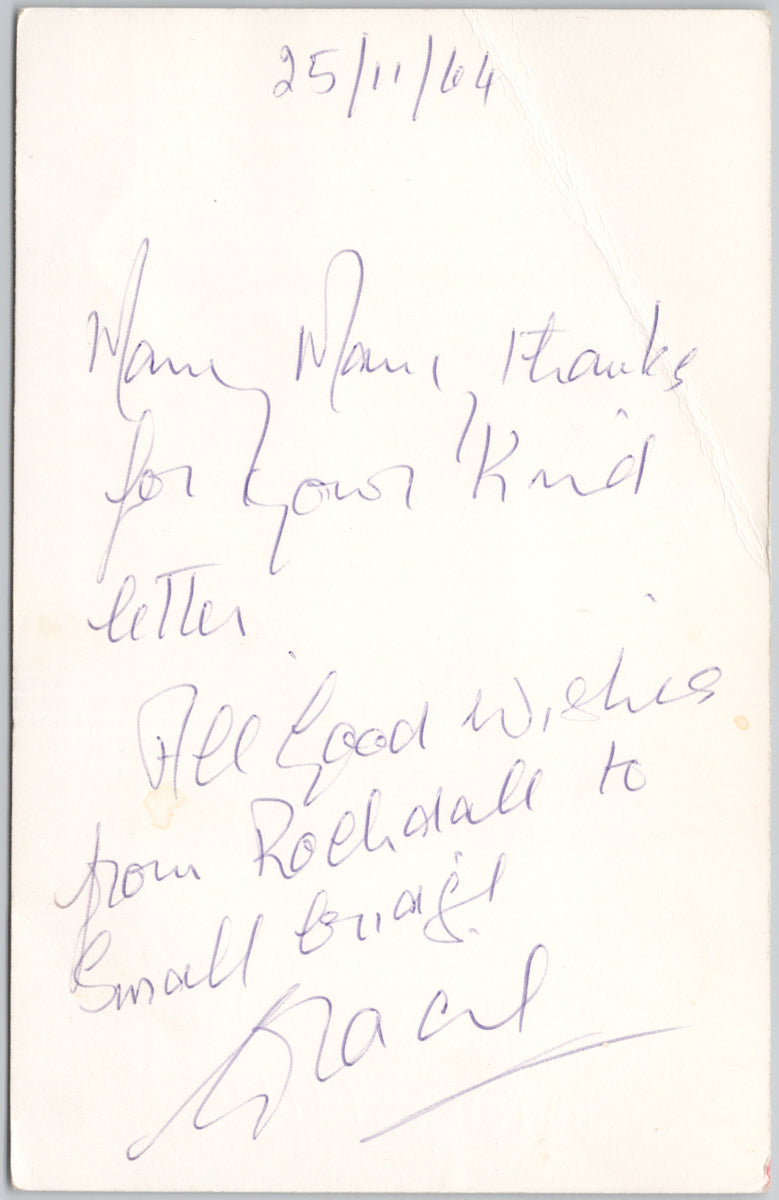 25/11/64
Many, Many, thanks
for your Kind
letter
All Good wishes
from Rochdale to
Smallbridge
Gracie